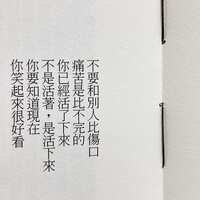 不要和別人比傷口
痛苦是比不完的
你已經活了下來
不是活著，是活下來
你要知道現在
你笑起來很好看